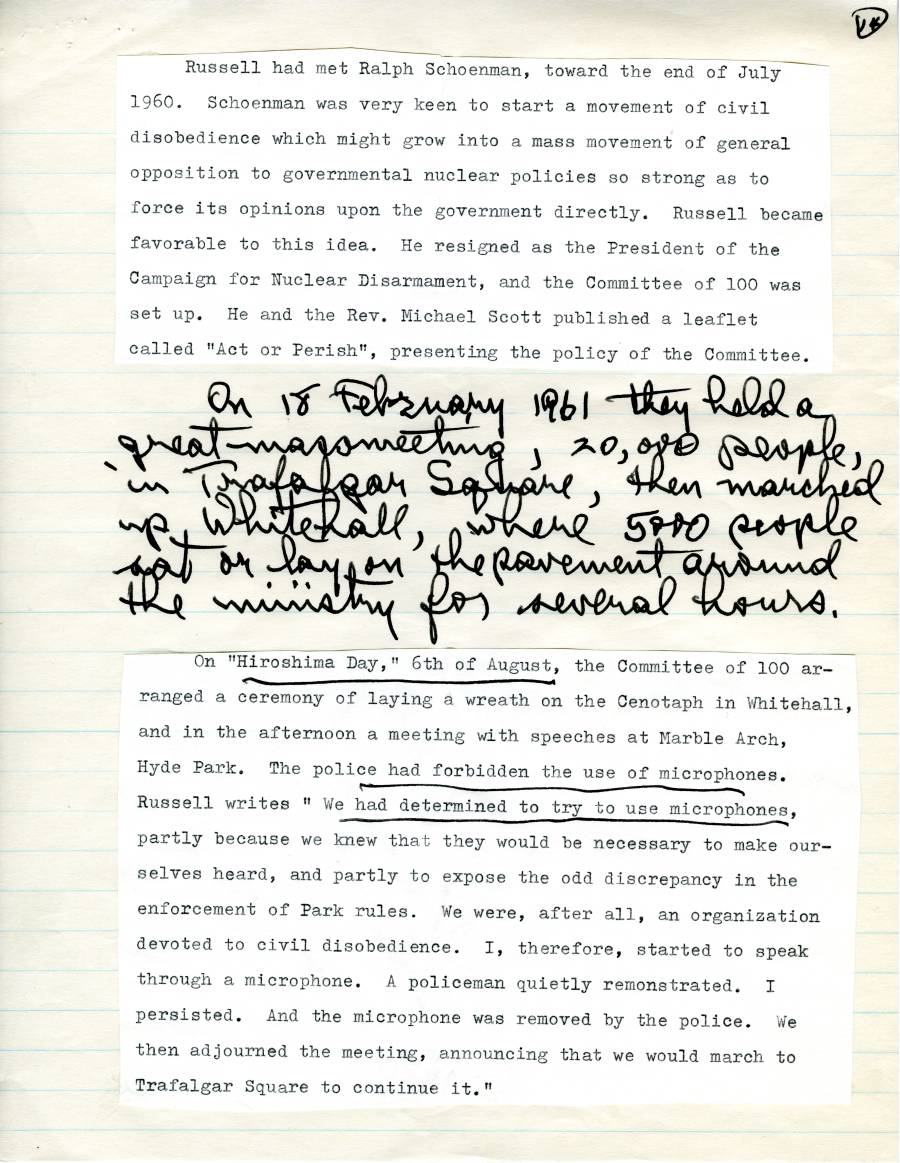 Russell had met Ralph Schoenman, toward the end of July
1960. Schoenman was very keen to start a movement of civil
disobedience which might grow into a mass movement of general
opposition to governmental nuclear policies so strong as to
force its opinions upon the government directly. Russell became
favorable to this idea. He resigned as the President of the
Campaign for Nuclear Disarmament, and the Committee of 100 was
set up. He and the Rev. Michael Scott published a leaflet
called "Act or Perish", presenting the policy of the Committee.
On 18 February 1961 they held a
great mass meeting, 20,000 people,
in Trafalgar Square, then marched
up Whitehall, where 5000 people
sat or lay on the pavement around
the ministry for several hours.
On "Hiroshima Day," 6th of August, the Committee of 100 ar-
ranged a ceremony of laying a wreath on the Cenotaph in Whitehall,
and in the afternoon a meeting with speeches at Marble Arch,
Hyde Park. The police had forbidden the use of microphones.
Russell writes " We had determined to try to use microphones,
partly because we knew that they would be necessary to make our-
selves heard, and partly to expose the odd discrepancy in the
enforcement of Park rules. We were, after all, an organization
devoted to civil disobedience. I, therefore, started to speak
through a microphone. A policeman quietly remonstrated. I
persisted. And the microphone was removed by the police. We
then adjourned the meeting, announcing that we would march to
Trafalgar Square to continue it."